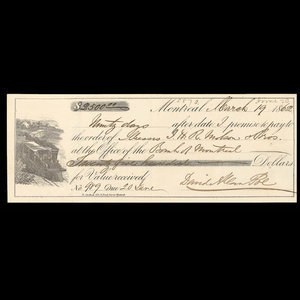 $2500.00
Montreal March 19 1862
Ninety days after date I promise to pay to
the order of Messrs J. H. R. Molson & Bros.
at the Office of the Bank of Montreal
Twenty five hundred Dollars
for Value received
No Due 20 June David Allan Poe